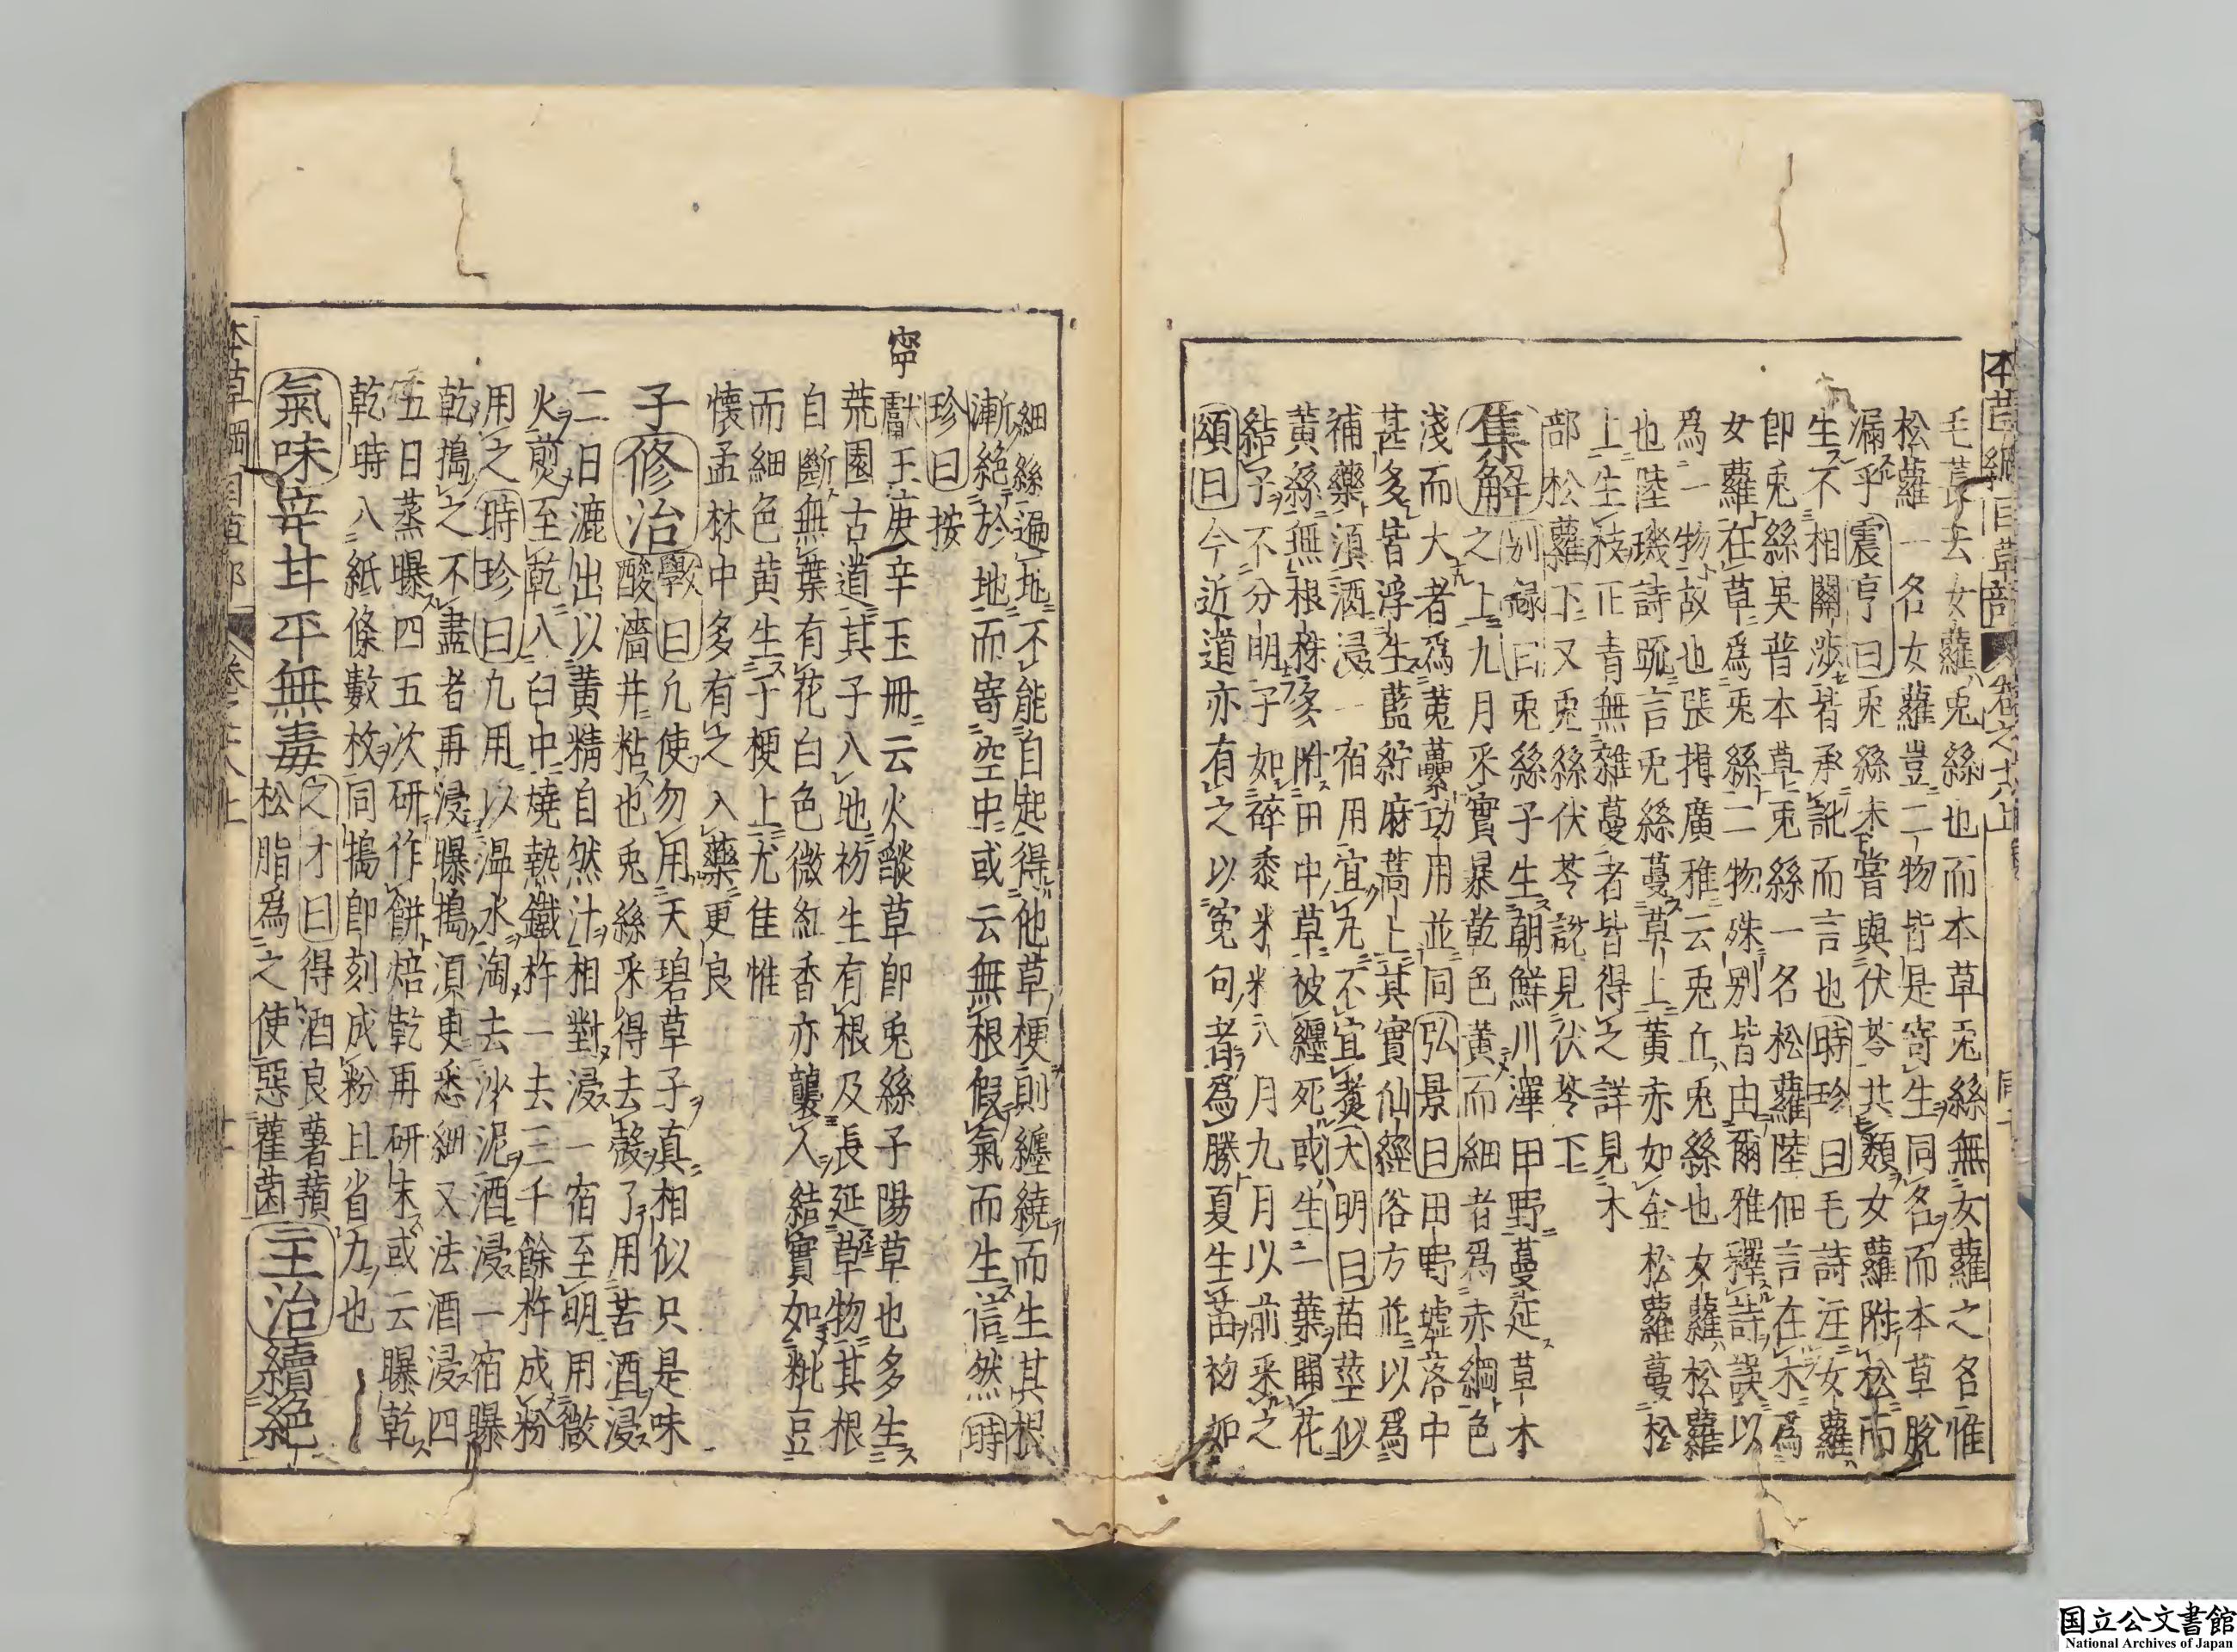 本草綱目草部 卷之十八上
毛萇云女蘿兎絲也而本草兎絲無女蘿之名惟
松蘿一名女蘿豈二物皆是寄生同名而本草脫
漏乎震亨曰兎絲未嘗與伏苓共類女蘿附松而
生不相關涉皆承訛而言也時珍曰毛詩注女蘿
即兎絲吳普本草兎絲一名松蘿陸佃言在木爲
女蘿在草爲兎絲二物殊別皆由爾雅釋詩誤以
爲一物故也張揖廣雅云兎丘兎絲也女蘿松蘿
也陸璣詩疏言兎絲蔓草上黃赤如金松蘿蔓松
上生枝正青無雜蔓者皆得之詳見木
部松蘿下又兎絲伏苓說見伏苓下
集解別錄曰兎絲子生朝鮮川澤田野蔓延草木
之上九月采實暴乾色黃而細者爲赤綱色
淺而大者爲菟虆功用並同弘景曰田野墟落中
甚多皆浮生藍紵麻蒿上其實仙經俗方並以爲
補藥須酒浸一宿用宜丸不宜煑大明曰苗莖似
黃絲無根株多附田中草被纏死或生一葉開花
結子不分明子如碎黍米粒八月九月以前采之
頌曰今近道亦有之以冤句者爲勝夏生苗初如
細絲遍地不能自起得他草梗則纏繞而生其根
漸絶於地而寄空中或云無根假氣而生信然時
珍曰按
寧獻王庚辛玉冊云火燄草即兎絲子陽草也多生
荒園古道其子入地初生有根及長延草物其根
自斷無葉有花白色微紅香亦襲人結實如粃豆
而細色黃生于梗上尤佳惟
懷孟林中多有之入藥更良
子修治斅曰凡使勿用天碧草子真相似只是味
酸濇并粘也兎絲采得去殼了用苦酒浸
二日漉出以黃精自然汁相對浸一宿至明用微
火煎至乾入臼中燒熱鐵杵一去三千餘杵成粉
用之時珍曰凡用以温水淘去沙泥酒浸一宿曝
乾搗之不盡者再浸曝搗須臾悉細又法酒浸四
五日蒸曝四五次研作餅焙乾再研末或云曝乾
乾時入紙條數枚同搗即刻成粉且省力也
氣味辛甘平無毒之才曰得酒良薯蕷
松脂爲之使惡雚菌主治續絶
本草綱目草部 卷之十八上
国立公文書館
National Archives of Japan